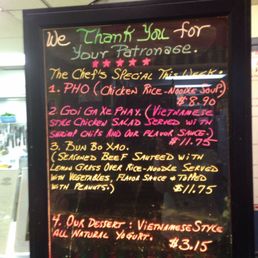 We Thank You for
Your Patronage..
The Chef's Special This Week:
1. PHO (Chicken Rice-Noodle Soup)
$8.90
2 Goi Ga Xe Phay. (Vietnamese
Style Chicken Salad Served with
Shrimp Chips And Our Flavor Sauce.)
$11.75
3. Bun Bo Xao.
(Seasoned Beef Sauteed with
Lemon Grass Over Rice-Noodle Served
With Vegetables, Flavor Sauce & Topped
With Peanuts.) $11.75
4. Our Dessert: Vietnamese Style
All Natural Yogurt.
$3.15